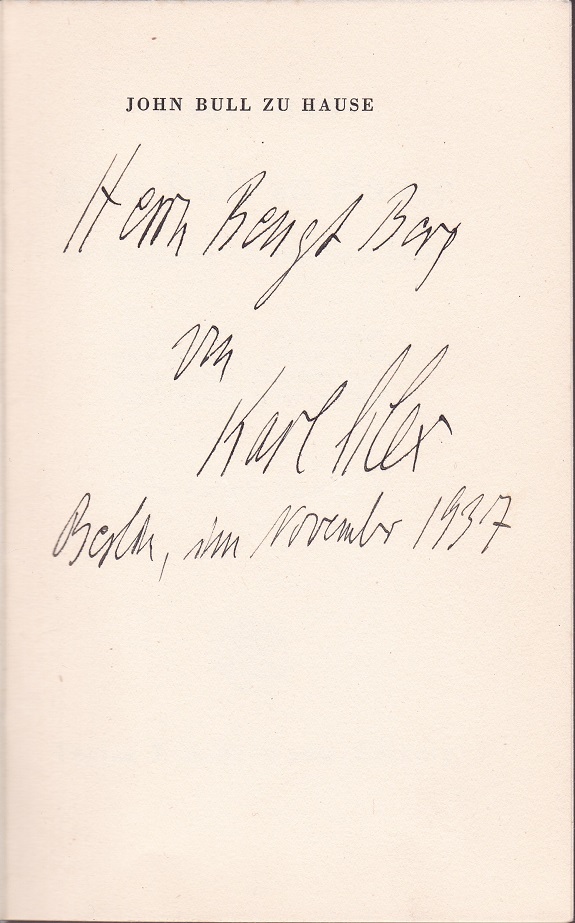 JOHN BULL ZU HAUSE
Herrn Bengt Berg
von
Karl Silex
Berlin, im November 1937